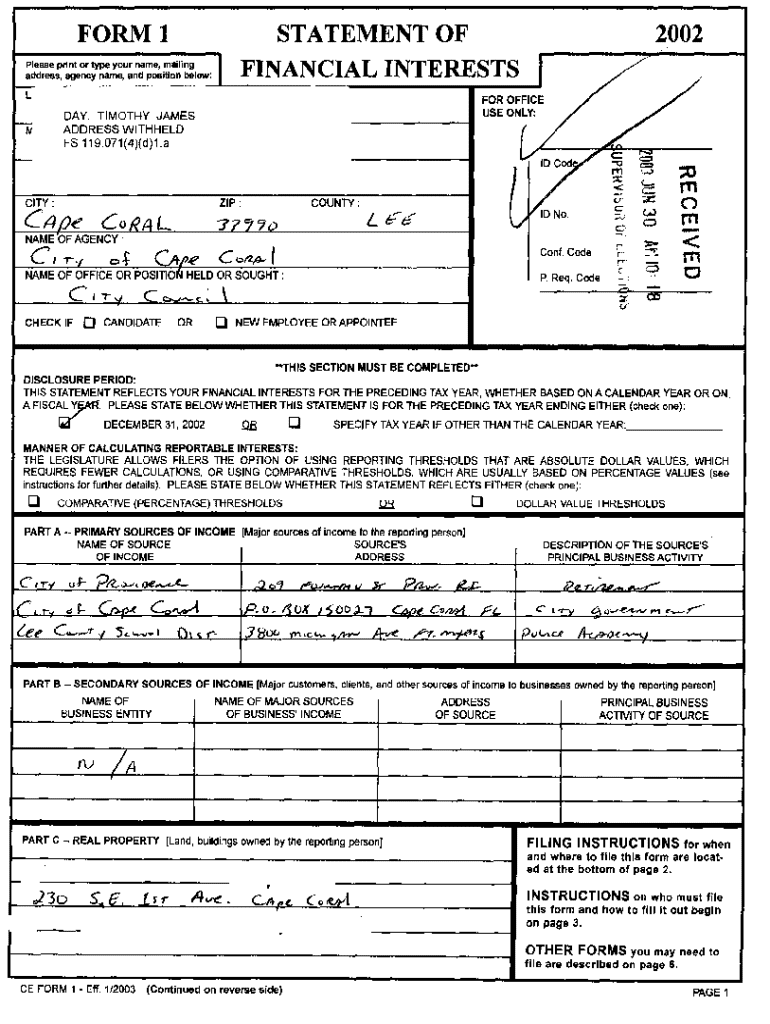 FORM 1
STATEMENT OF
2002
Please print or type your name, mailing
address, agency name, and position below:
FINANCIAL INTERESTS
FOR OFFICE
USE ONLY:
DAY, TIMOTHY JAMES
ADDRESS WITHHELD
FS 119.071(4)(d)1.a
ID Code
ID No.
Conf. Code
P. Req. Code
SUPERVISOR OF ELECTIONS
2003 JUN 30 AM 10: 18
RECEIVED
CITY : ZIP : COUNTY :
CAPE CORAL 33990 LEE
NAME OF AGENCY :
City of Cape Coral
NAME OF OFFICE OR POSITION HELD OR SOUGHT :
City Council
CHECK IF ☐ CANDIDATE OR ☐ NEW EMPLOYEE OR APPOINTEE
**THIS SECTION MUST BE COMPLETED**
DISCLOSURE PERIOD:
THIS STATEMENT REFLECTS YOUR FINANCIAL INTERESTS FOR THE PRECEDING TAX YEAR, WHETHER BASED ON A CALENDAR YEAR OR ON
A FISCAL YEAR. PLEASE STATE BELOW WHETHER THIS STATEMENT IS FOR THE PRECEDING TAX YEAR ENDING EITHER (check one):
☑ DECEMBER 31, 2002 OR ☐ SPECIFY TAX YEAR IF OTHER THAN THE CALENDAR YEAR:
MANNER OF CALCULATING REPORTABLE INTERESTS:
THE LEGISLATURE ALLOWS FILERS THE OPTION OF USING REPORTING THRESHOLDS THAT ARE ABSOLUTE DOLLAR VALUES, WHICH
REQUIRES FEWER CALCULATIONS, OR USING COMPARATIVE THRESHOLDS, WHICH ARE USUALLY BASED ON PERCENTAGE VALUES (see
instructions for further details). PLEASE STATE BELOW WHETHER THIS STATEMENT REFLECTS EITHER (check one):
☐ COMPARATIVE (PERCENTAGE) THRESHOLDS OR ☐ DOLLAR VALUE THRESHOLDS
PART A -- PRIMARY SOURCES OF INCOME [Major sources of income to the reporting person]
NAME OF SOURCE SOURCE'S DESCRIPTION OF THE SOURCE'S
OF INCOME ADDRESS PRINCIPAL BUSINESS ACTIVITY
City of Providence 209 St Prov. R.I Retirement
City of Cape Coral P.O. BOX 150027 Cape Coral FL City Government
Lee County School Dist 3800 Michigan Ave Ft. Myers Police Academy
PART B -- SECONDARY SOURCES OF INCOME [Major customers, clients, and other sources of income to businesses owned by the reporting person]
NAME OF NAME OF MAJOR SOURCES ADDRESS PRINCIPAL BUSINESS
BUSINESS ENTITY OF BUSINESS' INCOME OF SOURCE ACTIVITY OF SOURCE
N/A
PART C -- REAL PROPERTY [Land, buildings owned by the reporting person]
230 S.E. 1st Ave. Cape Coral
FILING INSTRUCTIONS for when
and where to file this form are locat-
ed at the bottom of page 2.
INSTRUCTIONS on who must file
this form and how to fill it out begin
on page 3.
OTHER FORMS you may need to
file are described on page 6.
CE FORM 1 - Eff. 1/2003 (Continued on reverse side)
PAGE 1